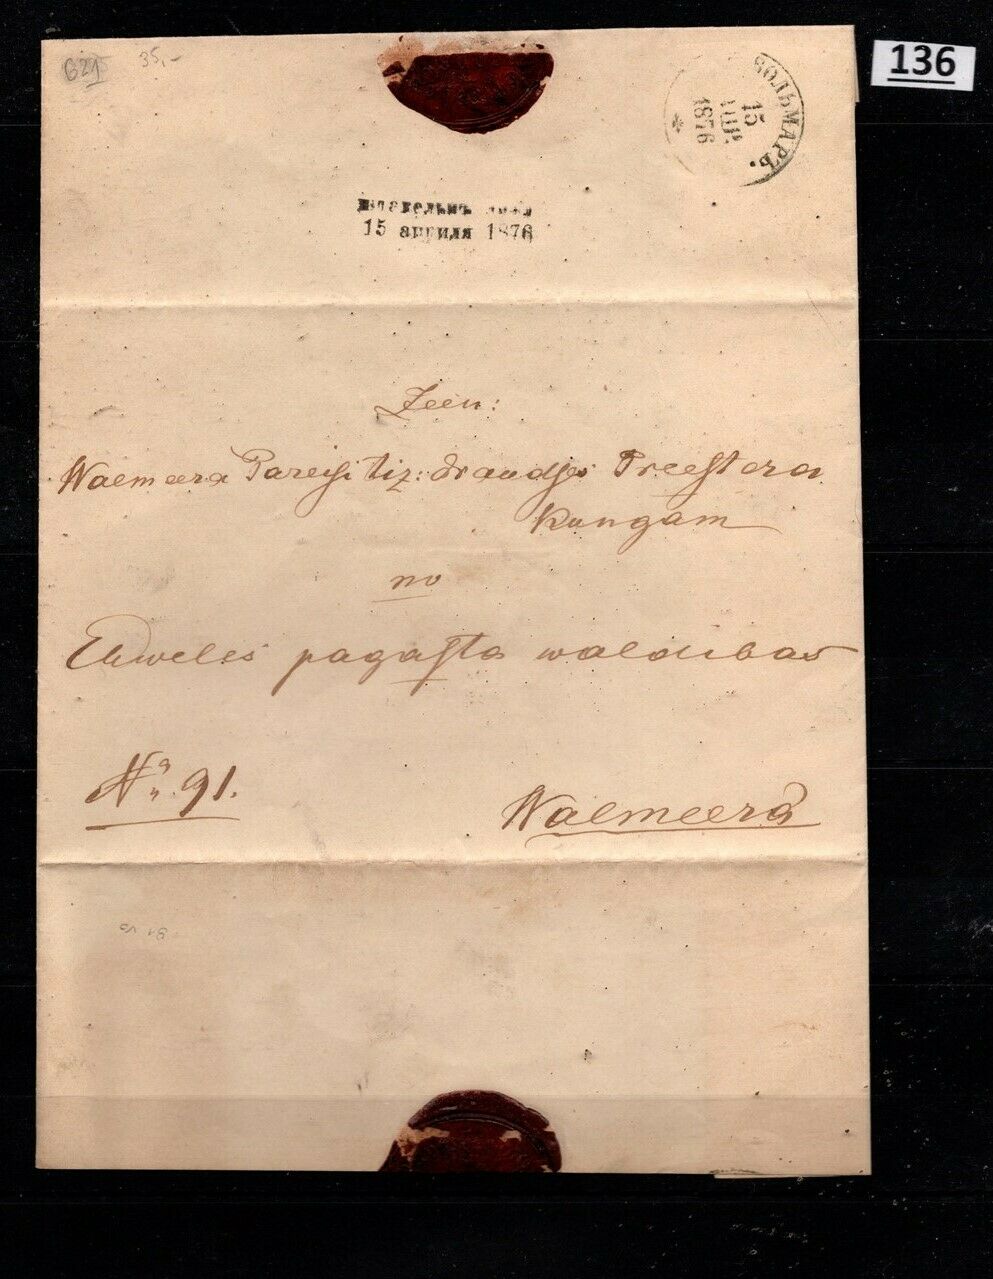 136
G21 35,-
ВОЛЬМАРЪ.
15
АПР.
1876
15 апреля 1876
Zeen:
Walmeera Pareisitiz: draudses Preestera
kungam
no
pagasta waldibas
No. 91.
Walmeerâ